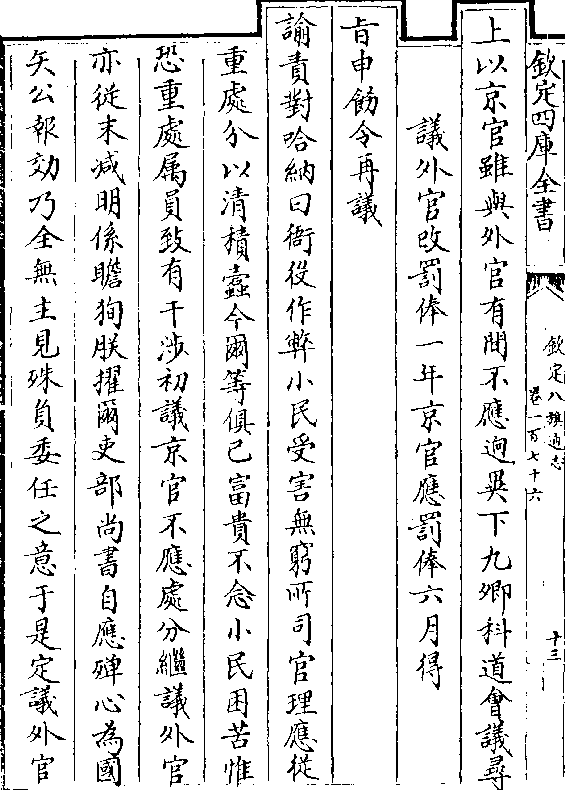 欽定四庫全書
欽定八旗通志
卷一百七十六
十三
上以京官雖與外官有間不應逈異下九卿科道會議尋
議外官改罰俸一年京官應罰俸六月得
旨申飭令再議
諭責對哈納曰衙役作弊小民受害無窮所司官理應從
重處分以清積蠹今爾等俱已富貴不念小民困苦惟
恐重處属員致有干涉初議京官不應處分繼議外官
亦從末减明係瞻狥朕擢爾吏部尚書自應殫心為國
矢公報効乃全無主見殊負委任之意于是定議外官